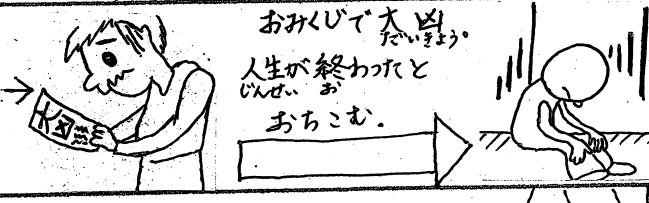 おみくじで大凶
だいきょう。
人生が終わったと
じんせい お
おちこむ.
大凶